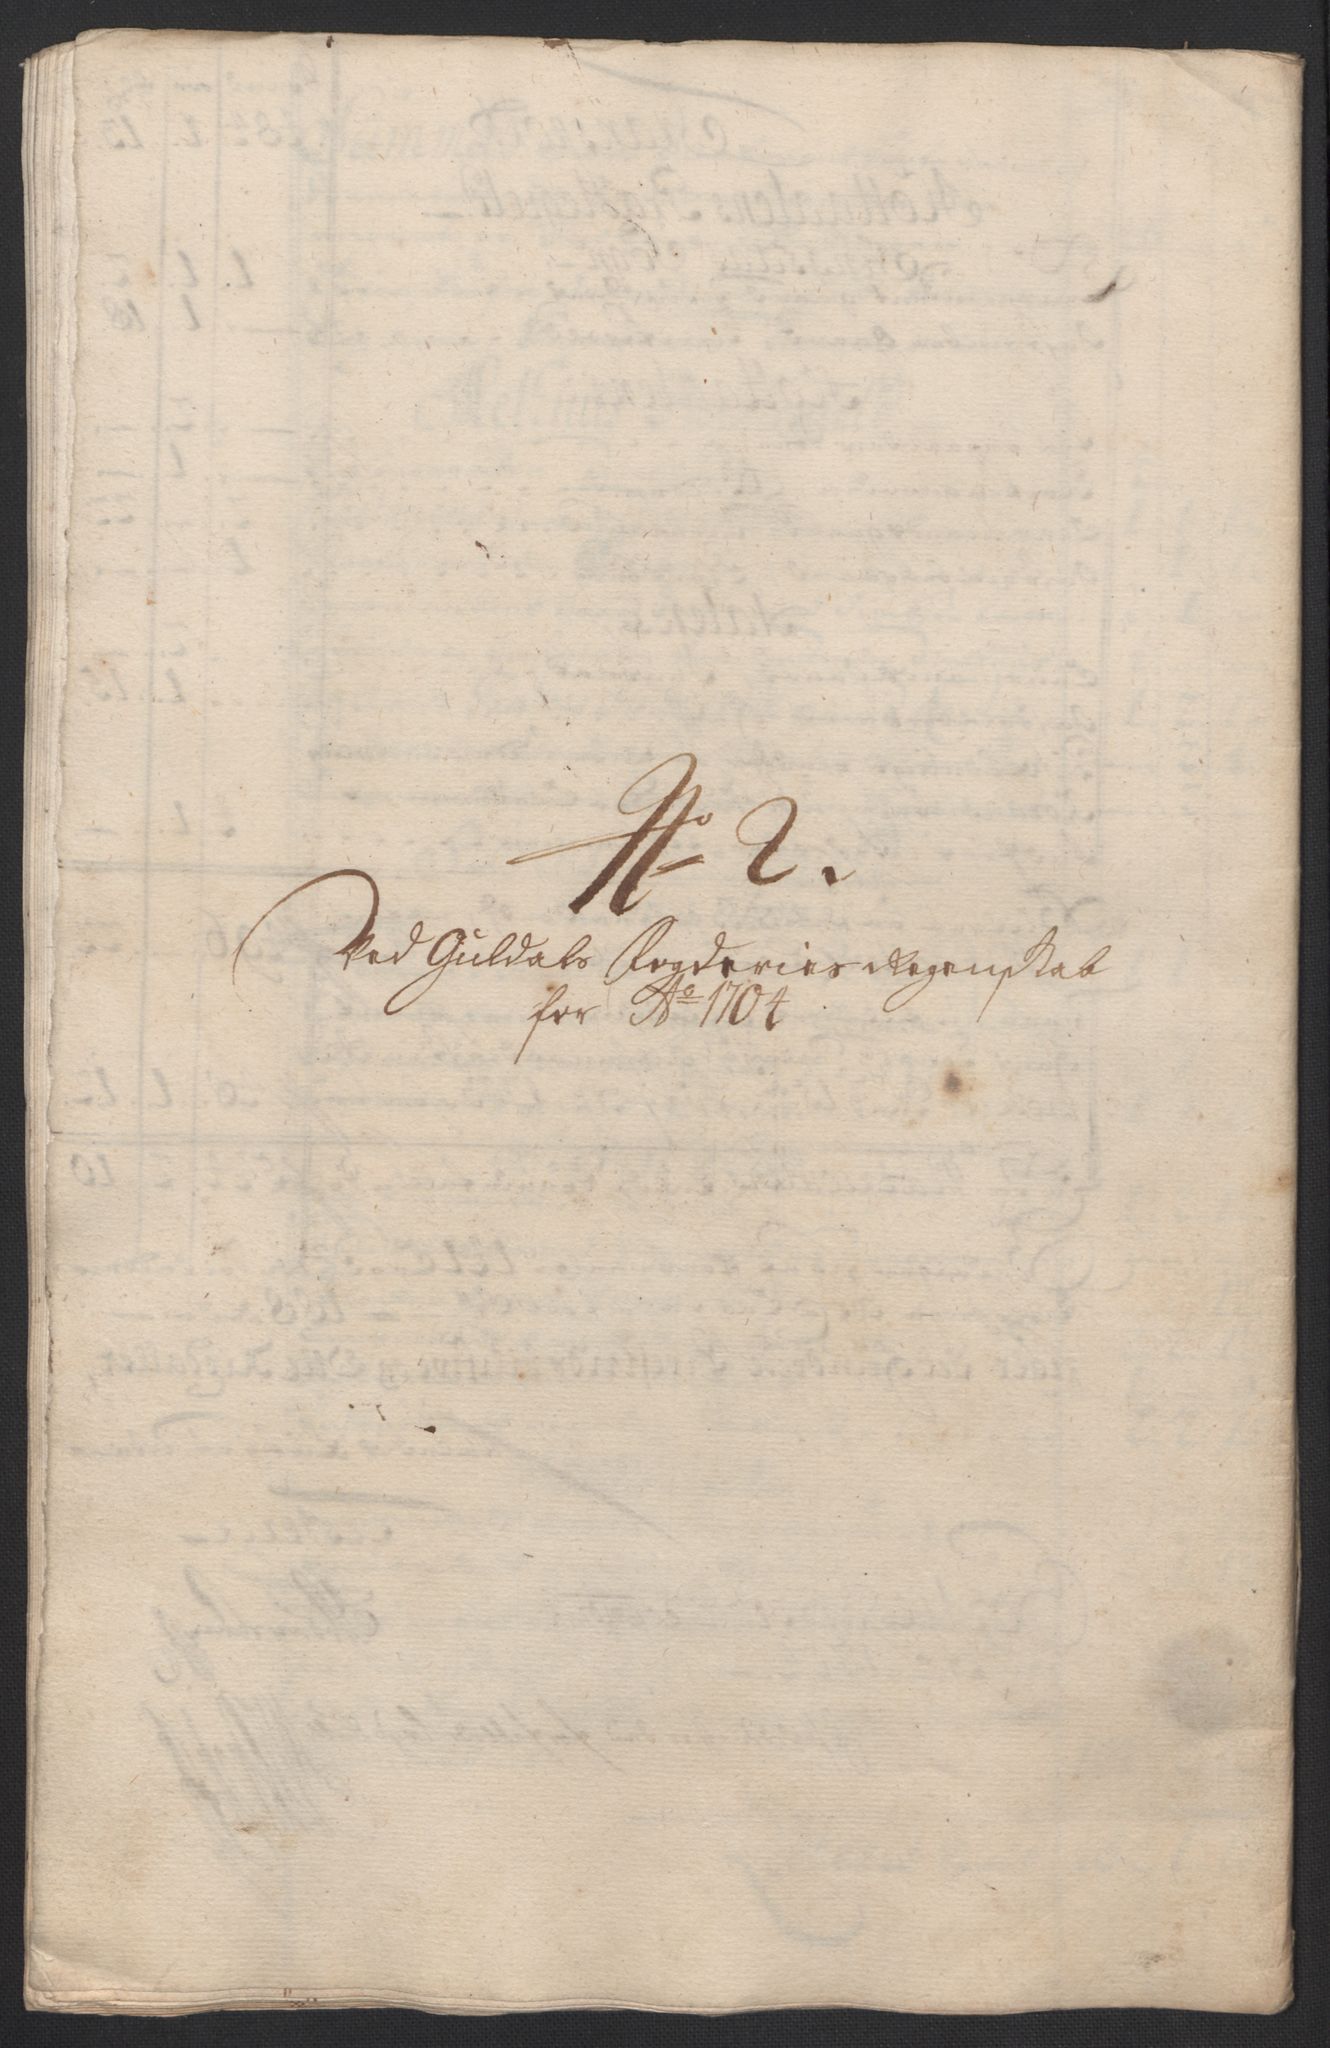 No 2.
Ved Guldals Fogderies Regenskab
for Ao 1704